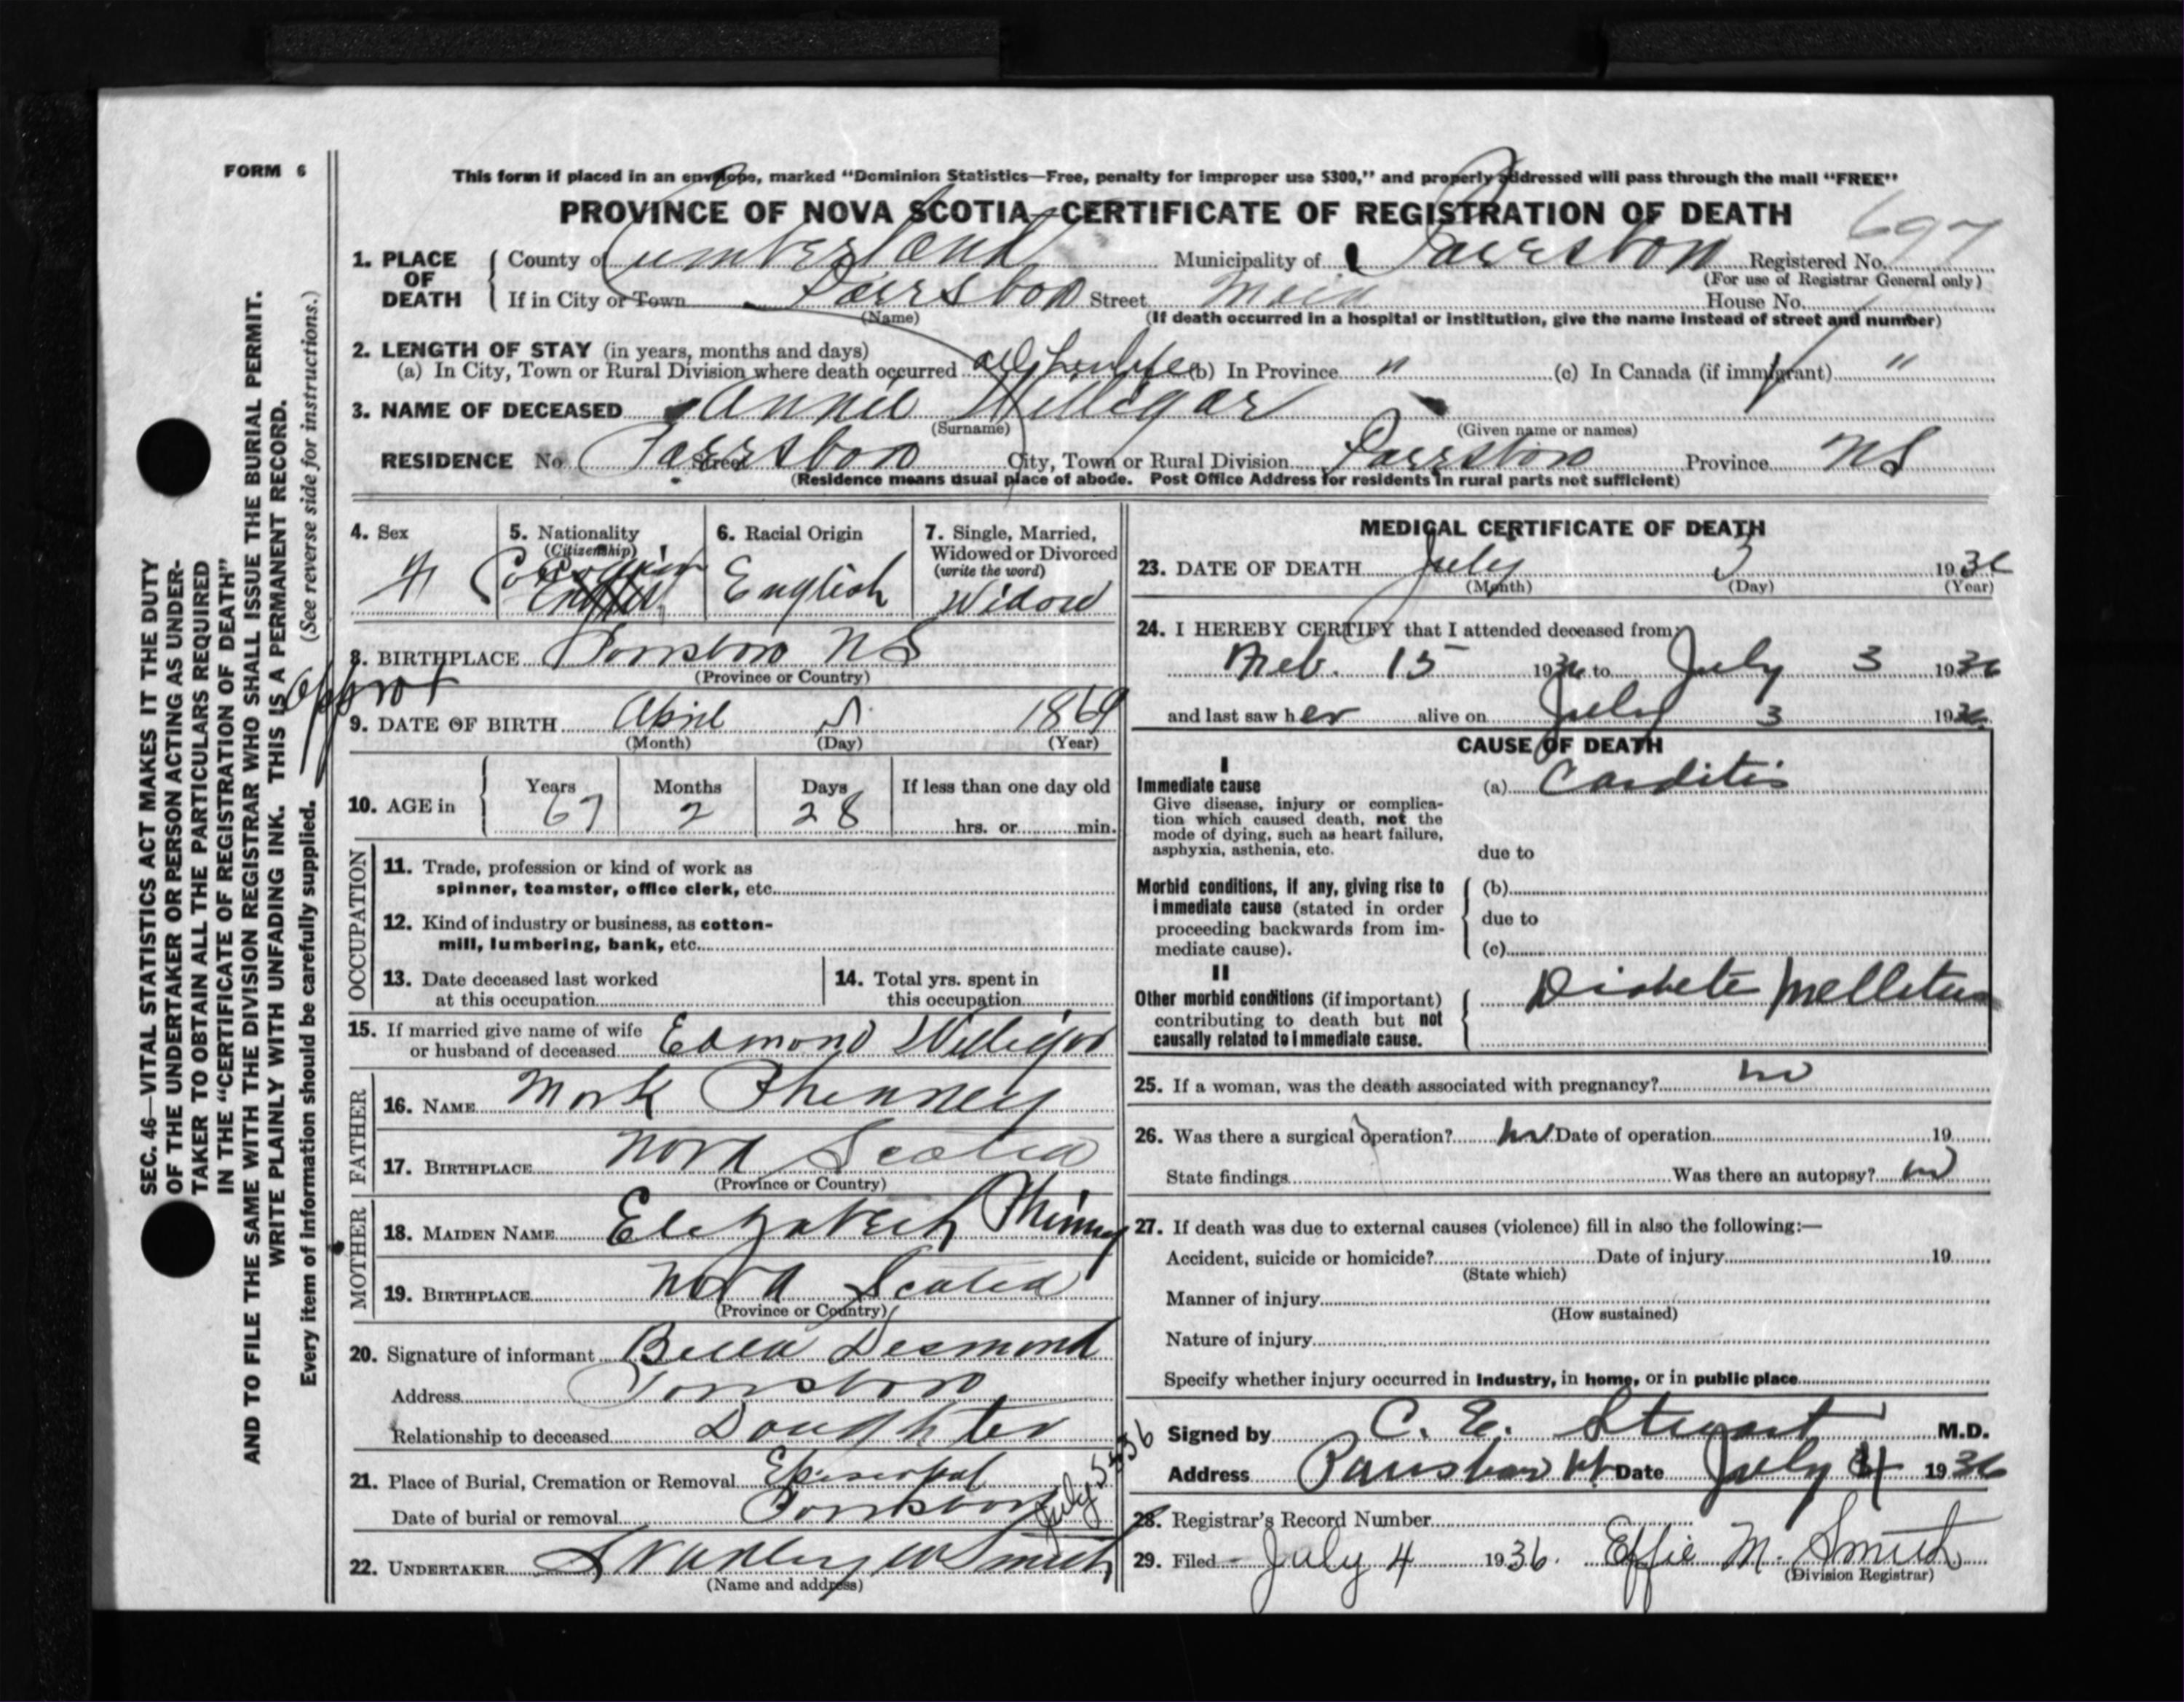 FORM 6
This form if placed in an envelope, marked "Dominion Statistics—Free, penalty for improper use $300," and properly addressed will pass through the mail "FREE"
PROVINCE OF NOVA SCOTIA—CERTIFICATE OF REGISTRATION OF DEATH
697
1. PLACE OF DEATH
County of Cumberland Municipality of Parrsboro Registered No.
(For use of Registrar General only)
If in City or Town Parrsboro Street Main House No.
(Name) (If death occurred in a hospital or institution, give the name instead of street and number)
2. LENGTH OF STAY (in years, months and days)
(a) In City, Town or Rural Division where death occurred all her life (b) In Province " (c) In Canada (if immigrant) "
3. NAME OF DECEASED Annie Willigar
(Surname) (Given name or names)
RESIDENCE No. Parrsboro Street City, Town or Rural Division Parrsboro Province NS
(Residence means usual place of abode. Post Office Address for residents in rural parts not sufficient)
4. Sex
5. Nationality (Citizenship) Canadian
6. Racial Origin English
7. Single, Married, Widowed or Divorced (write the word) Widow
8. BIRTHPLACE Parrsboro NS
(Province or Country)
approx
9. DATE OF BIRTH April 5 1869
(Month) (Day) (Year)
10. AGE in Years 67 Months 2 Days 28 If less than one day old hrs. or min.
OCCUPATION
11. Trade, profession or kind of work as spinner, teamster, office clerk, etc.
12. Kind of industry or business, as cotton-mill, lumbering, bank, etc.
13. Date deceased last worked at this occupation
14. Total yrs. spent in this occupation
15. If married give name of wife or husband of deceased Edmond Willigar
FATHER
16. NAME Mark Phinney
17. BIRTHPLACE Nova Scotia
(Province or Country)
MOTHER
18. MAIDEN NAME Elizabeth Phinney
19. BIRTHPLACE Nova Scotia
(Province or Country)
20. Signature of informant Bella Desmond
Address Parrsboro
Relationship to deceased Daughter
21. Place of Burial, Cremation or Removal Episcopal
Date of burial or removal Parrsboro July 5 36
22. UNDERTAKER Stanley W Smith
(Name and address)
MEDICAL CERTIFICATE OF DEATH
23. DATE OF DEATH July 3 1936
(Month) (Day) (Year)
24. I HEREBY CERTIFY that I attended deceased from:
Feb. 15 1936 to July 3 1936
and last saw her alive on July 3 1936
CAUSE OF DEATH
I
Immediate cause (a) Carditis
Give disease, injury or complica-
tion which caused death, not the
mode of dying, such as heart failure,
asphyxia, asthenia, etc.
due to
Morbid conditions, if any, giving rise to (b)
immediate cause (stated in order due to
proceeding backwards from im-
mediate cause). (c)
II
Other morbid conditions (if important) Diabetes Mellitus
contributing to death but not
causally related to immediate cause.
25. If a woman, was the death associated with pregnancy? no
26. Was there a surgical operation? no Date of operation 19
State findings Was there an autopsy? no
27. If death was due to external causes (violence) fill in also the following:—
Accident, suicide or homicide? Date of injury 19
(State which)
Manner of injury
(How sustained)
Nature of injury
Specify whether injury occurred in industry, in home, or in public place
Signed by C. E. Stewart M.D.
Address Parrsboro NS Date July 4 1936
28. Registrar's Record Number
29. Filed July 4 1936. Effie M. Smith
(Division Registrar)
SEC. 46—VITAL STATISTICS ACT MAKES IT THE DUTY
OF THE UNDERTAKER OR PERSON ACTING AS UNDER-
TAKER TO OBTAIN ALL THE PARTICULARS REQUIRED
IN THE "CERTIFICATE OF REGISTRATION OF DEATH"
AND TO FILE THE SAME WITH THE DIVISION REGISTRAR WHO SHALL ISSUE THE BURIAL PERMIT.
WRITE PLAINLY WITH UNFADING INK. THIS IS A PERMANENT RECORD.
Every item of information should be carefully supplied. (See reverse side for instructions.)